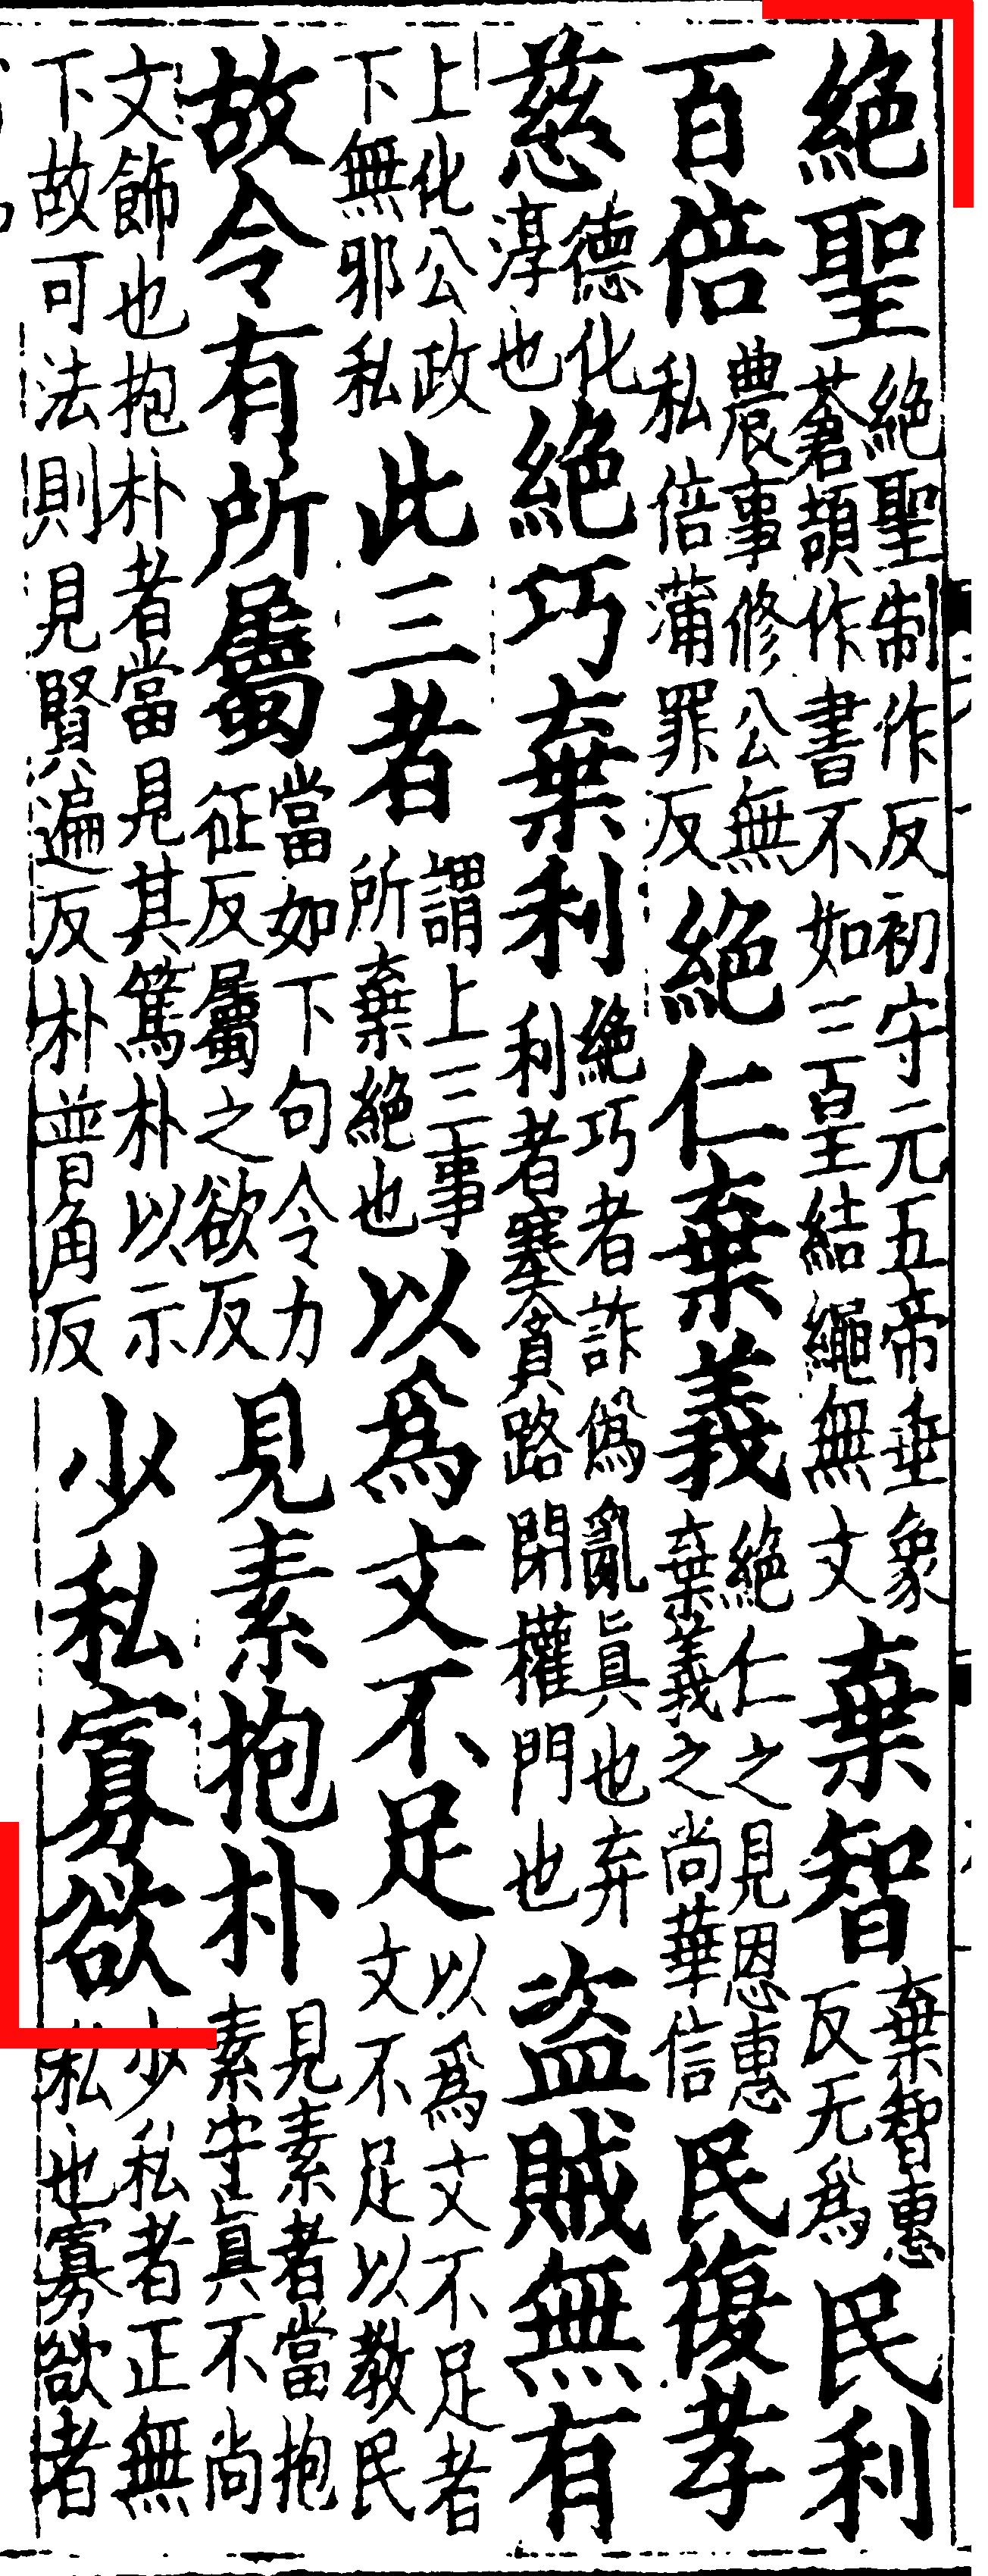 絕聖絕聖制作反初守元五帝垂象蒼頡作書不如三皇結繩無文棄智棄智惠反无爲民利
百倍農事修公無私倍蒲罪反絕仁棄義絕仁之見恩惠棄義之尚華信民復孝
慈德化淳也絕巧棄利絕巧者詐偽亂真也弃利者塞貪路閉權門也盜賊無有
上化公政下無邪私此三者謂上三事所棄絕也以爲文不足以爲文不足者文不足以教民
故令有所屬當如下句令力征反屬之欲反見素抱朴見素者當抱素守真不尚
文飾也抱朴者當見其篤朴以示下故可法則見賢遍反朴普角反少私寡欲少私者正無私也寡欲者